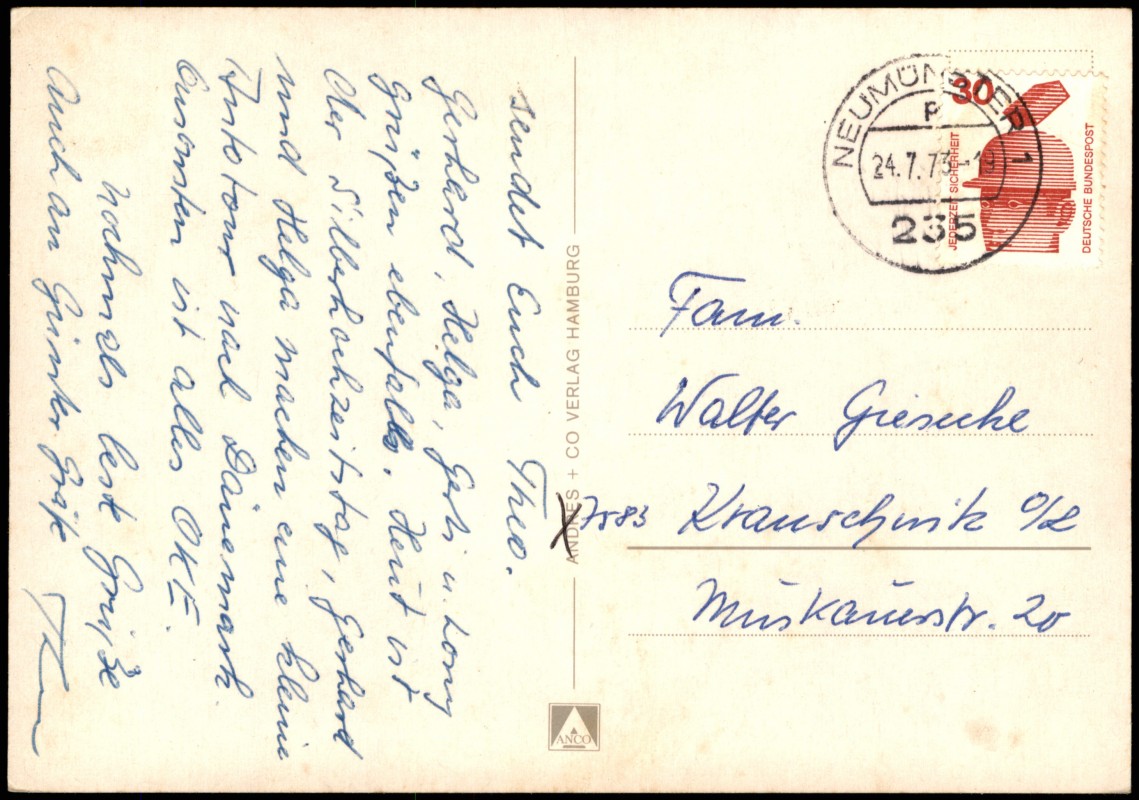 sendet Euch Theo.
Gerhard, Helga, Gert u. Lony
Grüßen ebenfalls. Heut ist
der Silberhochzeitstag, Gerhard
und Helga machen eine kleine
Autotour nach Dänemark
Ansonsten ist alles OKE.
nochmals beste Grüße
Auch an Günter Grüße
ANDRES + CO VERLAG HAMBURG
ANCO
NEUMÜNSTER 1
P
24.7.73-19
235
30
JEDERZEIT SICHERHEIT
DEUTSCHE BUNDESPOST
Fam.
Walter Giesecke
X 7583 Krauschwitz O/L
Muskauerstr. 20